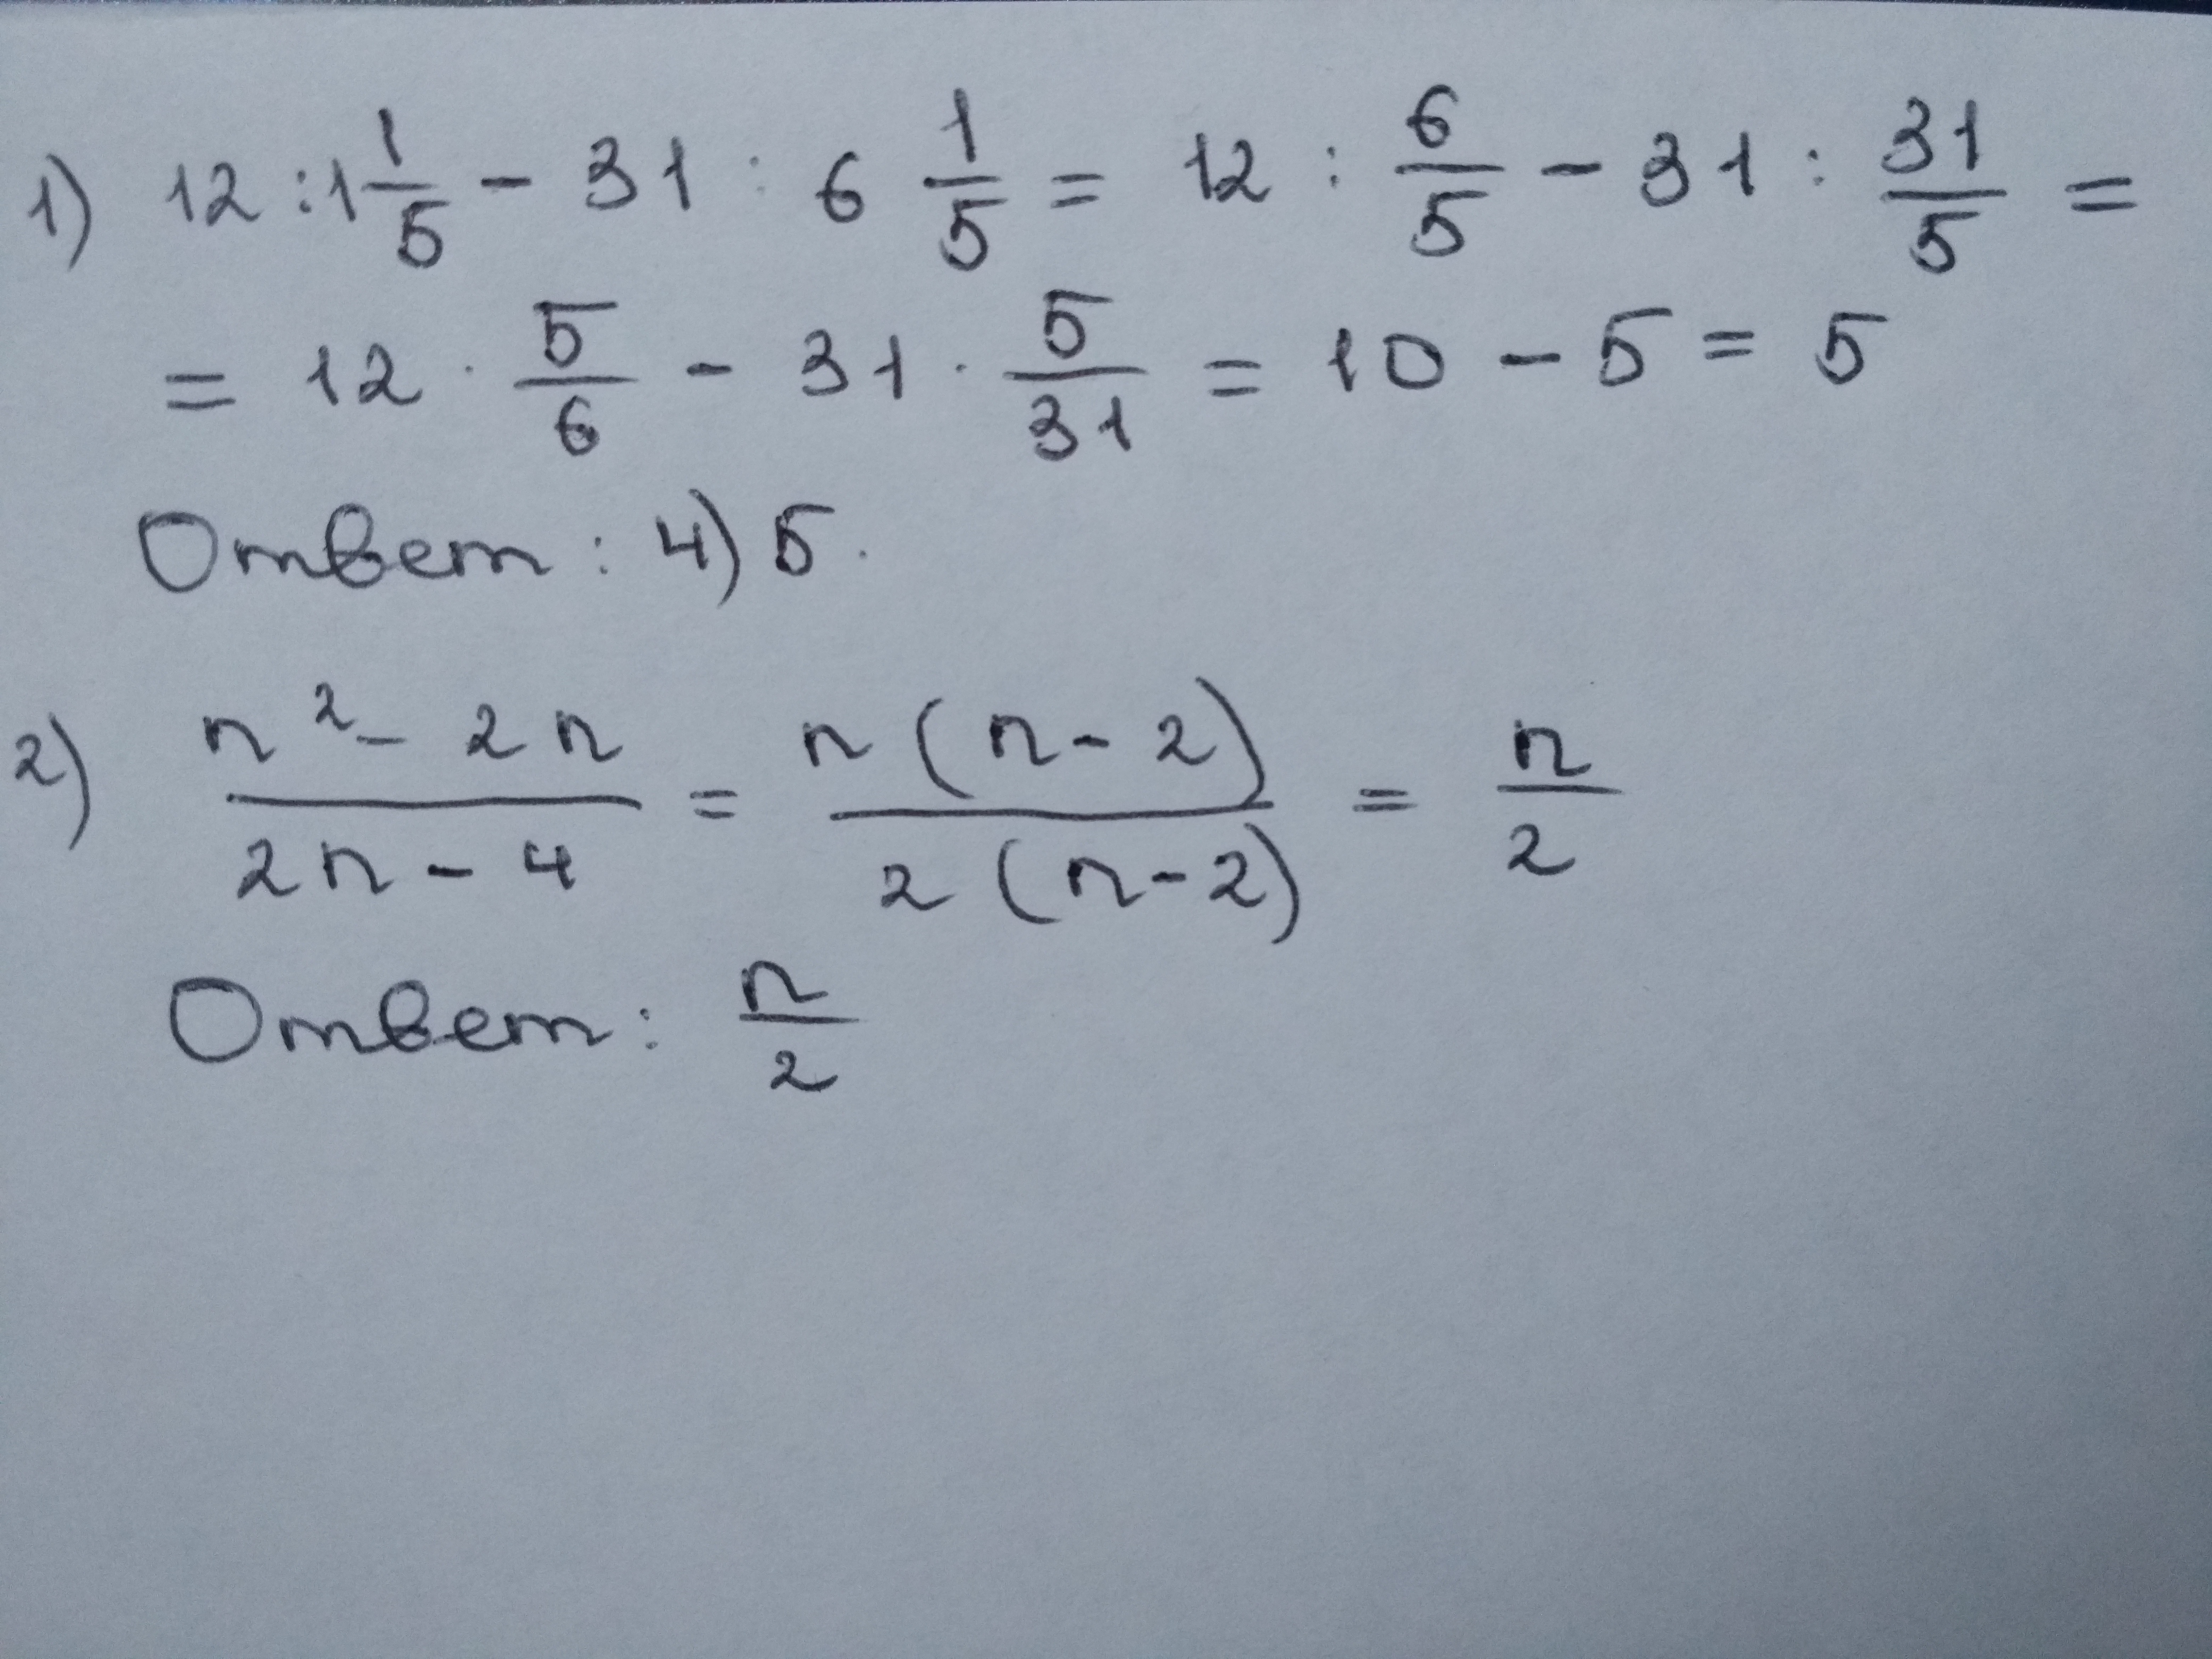 1) 12 : 1 1/5 - 31 : 6 1/5 = 12 : 6/5 - 31 : 31/5 =
= 12 · 5/6 - 31 · 5/31 = 10 - 5 = 5
Ответ: 4) 5.
2) (n² - 2n)/(2n - 4) = n(n-2)/2(n-2) = n/2
Ответ: n/2